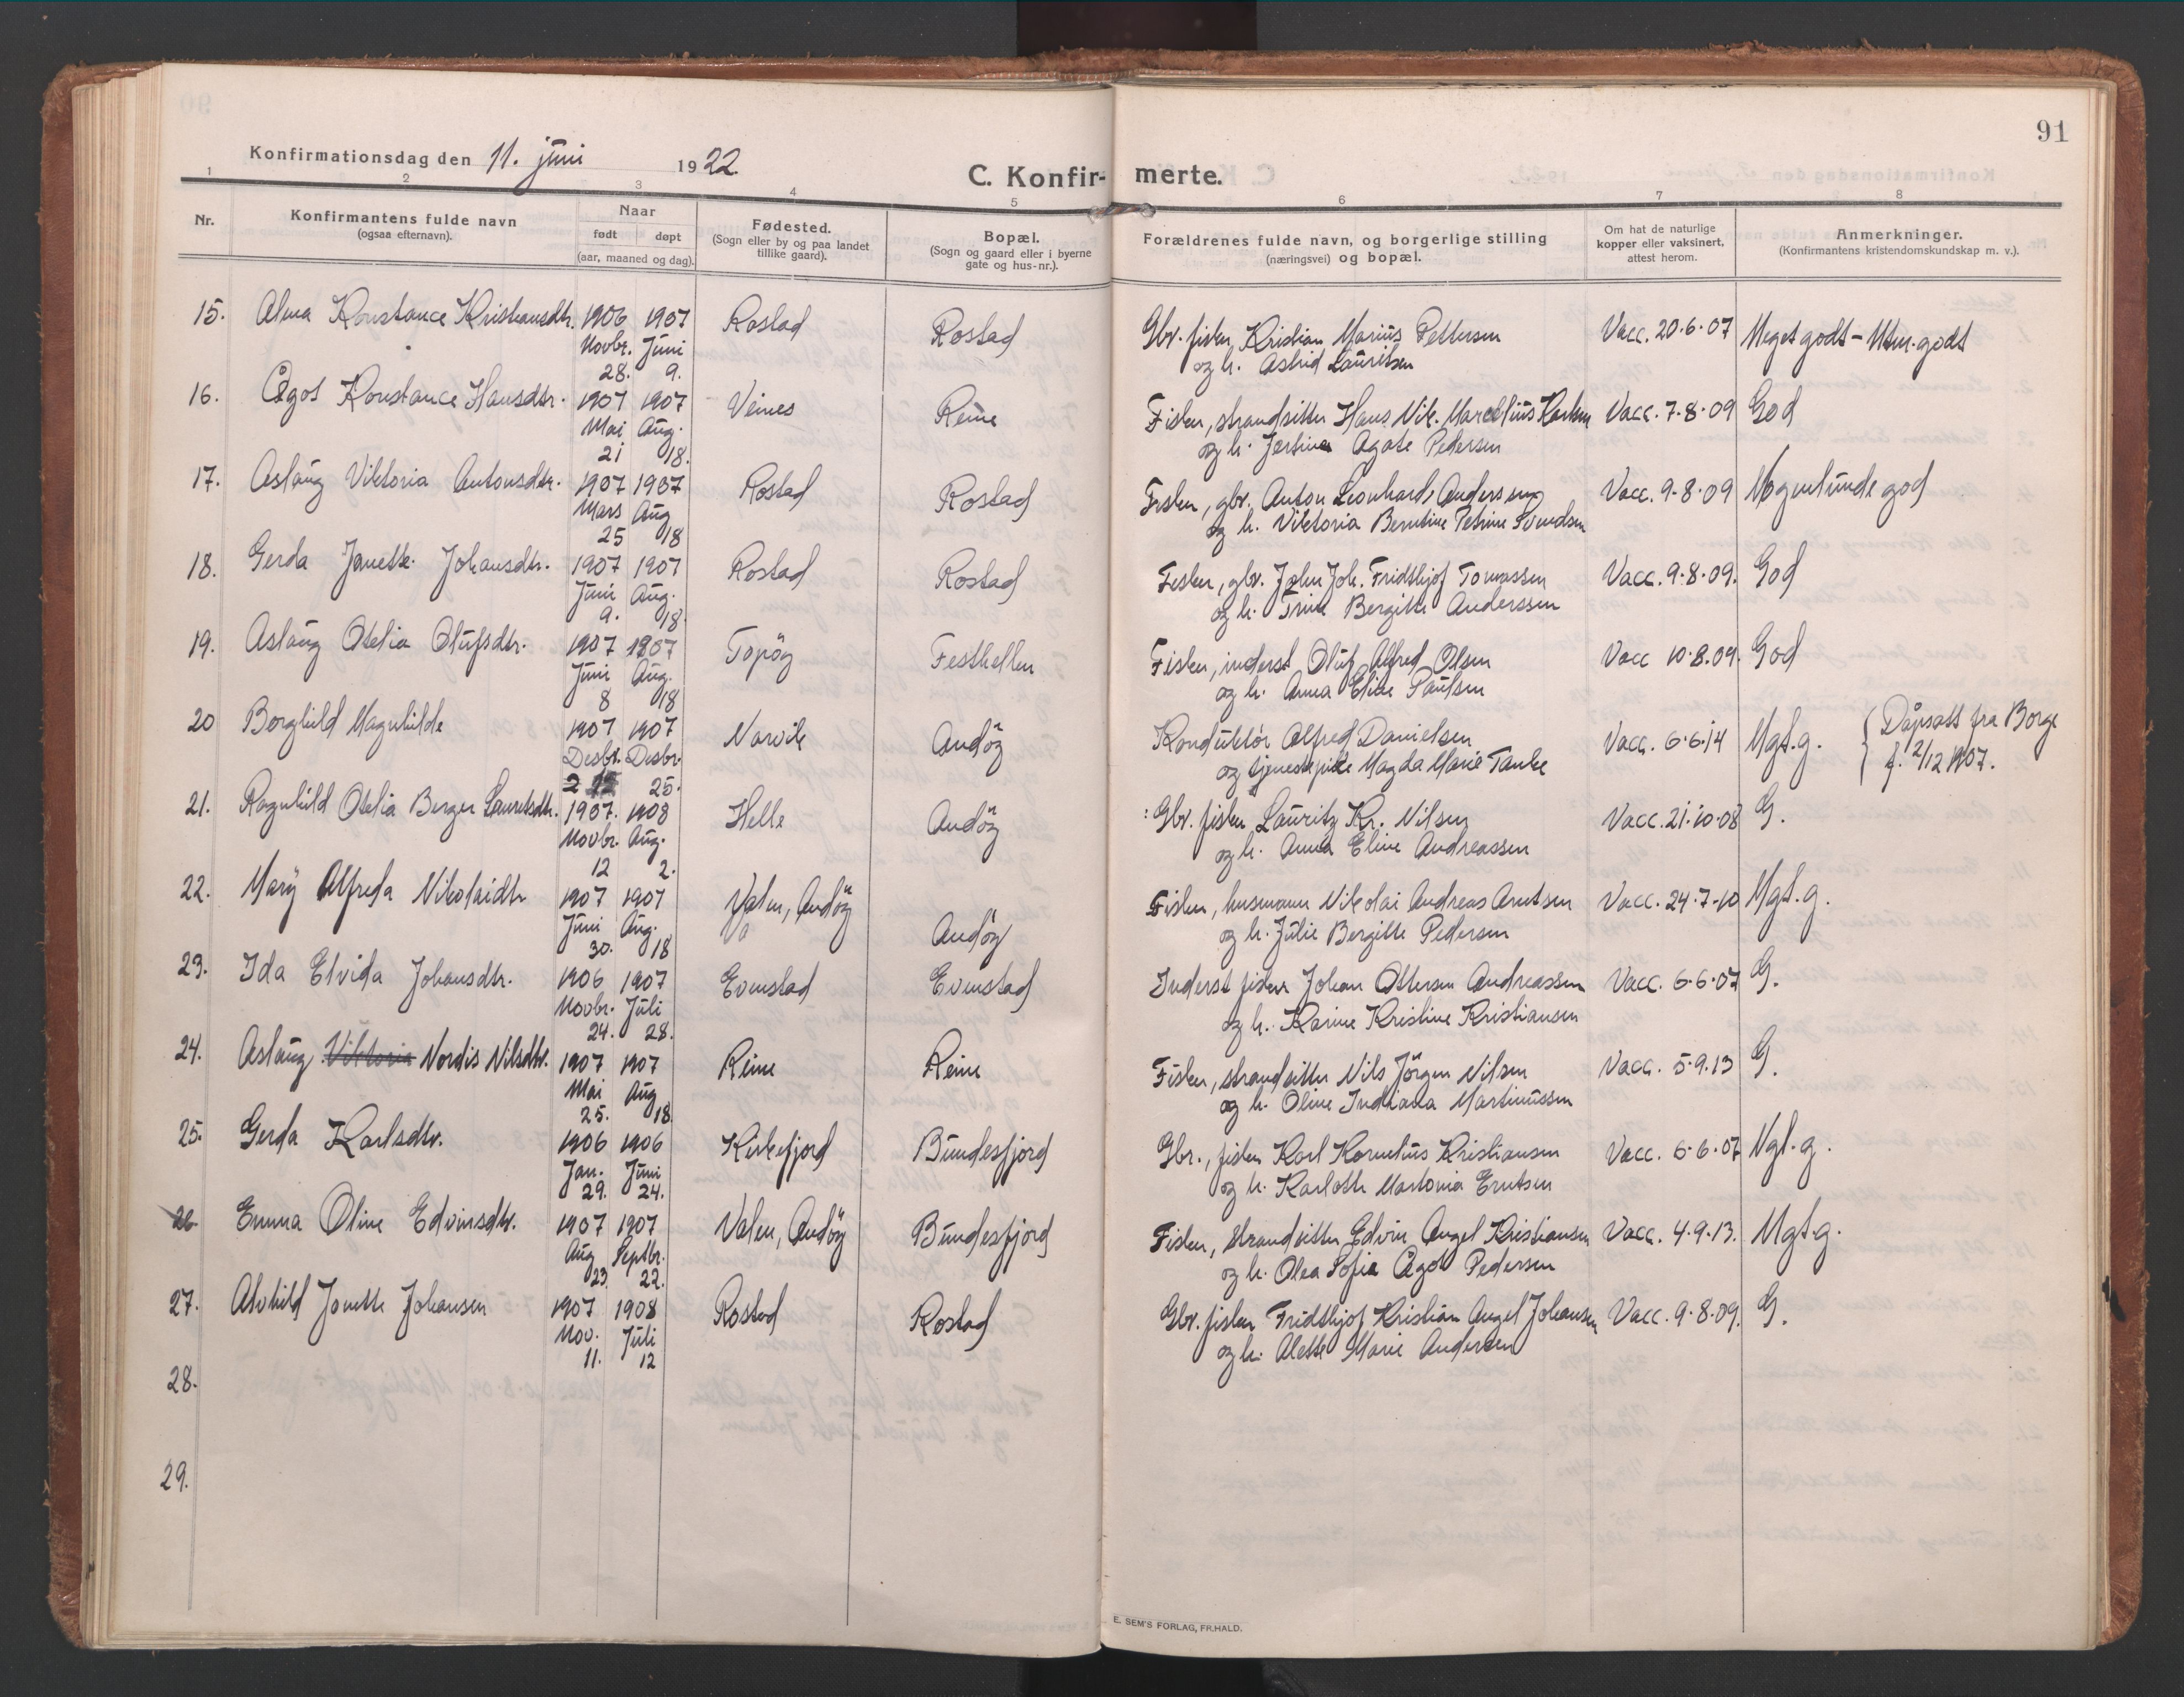 91
Konfirmationsdag den 11. juni 1922.
C. Konfir- merte.
1 2 3 4 5 6 7 8
Nr.
Konfirmantens fulde navn
(ogsaa efternavn).
Naar
født døpt
(aar, maaned og dag).
Fødested.
(Sogn eller by og paa landet
tillike gaard).
Bopæl.
(Sogn og gaard eller i byerne
gate og hus-nr.).
Forældrenes fulde navn, og borgerlige stilling
(næringsvei) og bopæl.
Om hat de naturlige
kopper eller vaksinert,
attest herom.
Anmerkninger.
(Konfirmantens kristendomskundskap m. v.).
15. Alma Konstance Kristiansdtr. 1906 1907 Rostad Rostad Gbr. fisker Kristian Marius Pettersen Vacc. 20.6.07 Meget godt - Utm. godt
Novbr. Juni og h. Astrid Lauritsen
28. 9.
16. Ågot Konstance Hansdtr. 1907 1907 Veines Reine Fisker, strandsitter Hans Nik. Marcelius Karlsen Vacc. 7-8-09 God
Mai Aug. og h. Agate Pedersen
21 18.
17. Aslaug Viktoria Antonsdtr. 1907 1907 Rostad Rostad Fisker, gbr. Anton Leonhard Anderssen Vacc. 9-8-09 Nogenlunde god
Mars Aug og h. Viktoria Berntine Petrine Svendsen
25 18
18. Gerda Janette Johansdtr. 1907 1907 Rostad Rostad Fisker, gbr. John Joh. Fridthjof Tomassen Vacc. 9-8-09. God
Juni Aug. og h. Trine Bergitte Anderssen
9. 18.
19. Aslaug Otelia Olufsdtr. 1907 1907 Topöy Festhellen Fisker, inderst Oluf Alfred Olsen Vacc 10-8.09. God
Juni Aug. og h. Anna Eline Paulsen
8 18
20 Borghild Magnhilde 1907 1907 Narvik Andöy Konduktör Alfred Danielsen Vacc. 6-6-14 Mgt. g. { Dåpsatt fra Borge
Desbr. Desbr. og tjenestepike Magda Marie f. 2/12 1907.
2 25.
21. Ragnhild Otelia Berger Lauritsdtr. 1907. 1908 Helle Andöy Gbr. fisker Lauritz Kr. Nilsen Vacc. 21-10-08 G.
Novbr. Aug. og h. Anna Eline Andreassen
12 2.
22. Mary Alfreda Nikolaidtr 1907 1907 Valen, Andöy Andöy Fisker, husmann Nikolai Andreas Arntsen Vacc. 24-7-10 Mgt. g.
Juni Aug. og h. Julie Bergitte Pedersen
30. 18
23. Ida Elvida Johansdtr. 1906 1907 Evenstad Evenstad Inderst fisker Johan Ottersen Andreassen Vacc. 6-6-07 G.
Novbr. Juli og h. Karine Kristine Kristiansen
24. 28.
24. Aslaug Viktoria Nordis Nilsdtr. 1907 1907 Reine Reine Fisker, strandsitter Nils Jörgen Nilsen Vacc. 5-9.13 G.
Mai Aug og h. Oline Indiana Martinussen
25. 18
25. Gerda Karlsdtr. 1906 1906 Kirkefjord Bundesfjord Gbr., fisker Karl Kornelius Kristiansen Vacc. 6-6-07 Ngl. g.
Jan. Juni og h. Karlotte Martonia Erntsen
29. 24.
26 Emma Oline Edvinsdtr. 1907 1907 Valen, Andöy Bundesfjord Fisker, strandsitter Edvin Angel Kristiansen Vacc. 4.9.13. Mgt. g.
Aug Septbr. og h. Olea Sofie Ågot Pedersen
23. 22.
27. Alvhild Jonette Johansen 1907 1908 Rostad Rostad Gbr. fisker Fridthjof Kristian Angel Johansen Vacc. 9-8-09. G.
Nov. Juli og h. Alette Marie Andersen
11. 12
28.
29.
E. SEM'S FORLAG, FR.HALD.